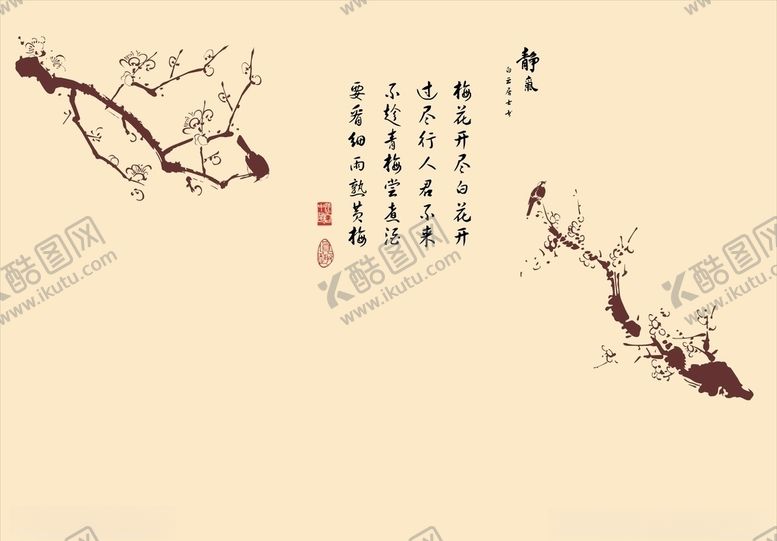 静气
梅花开尽白花开
过尽行人君不来
不趁青梅尝煮酒
要看细雨熟黄梅
酷图网
www.ikutu.com
酷图网
www.ikutu.com
酷图网
www.ikutu.com
酷图网
www.ikutu.com